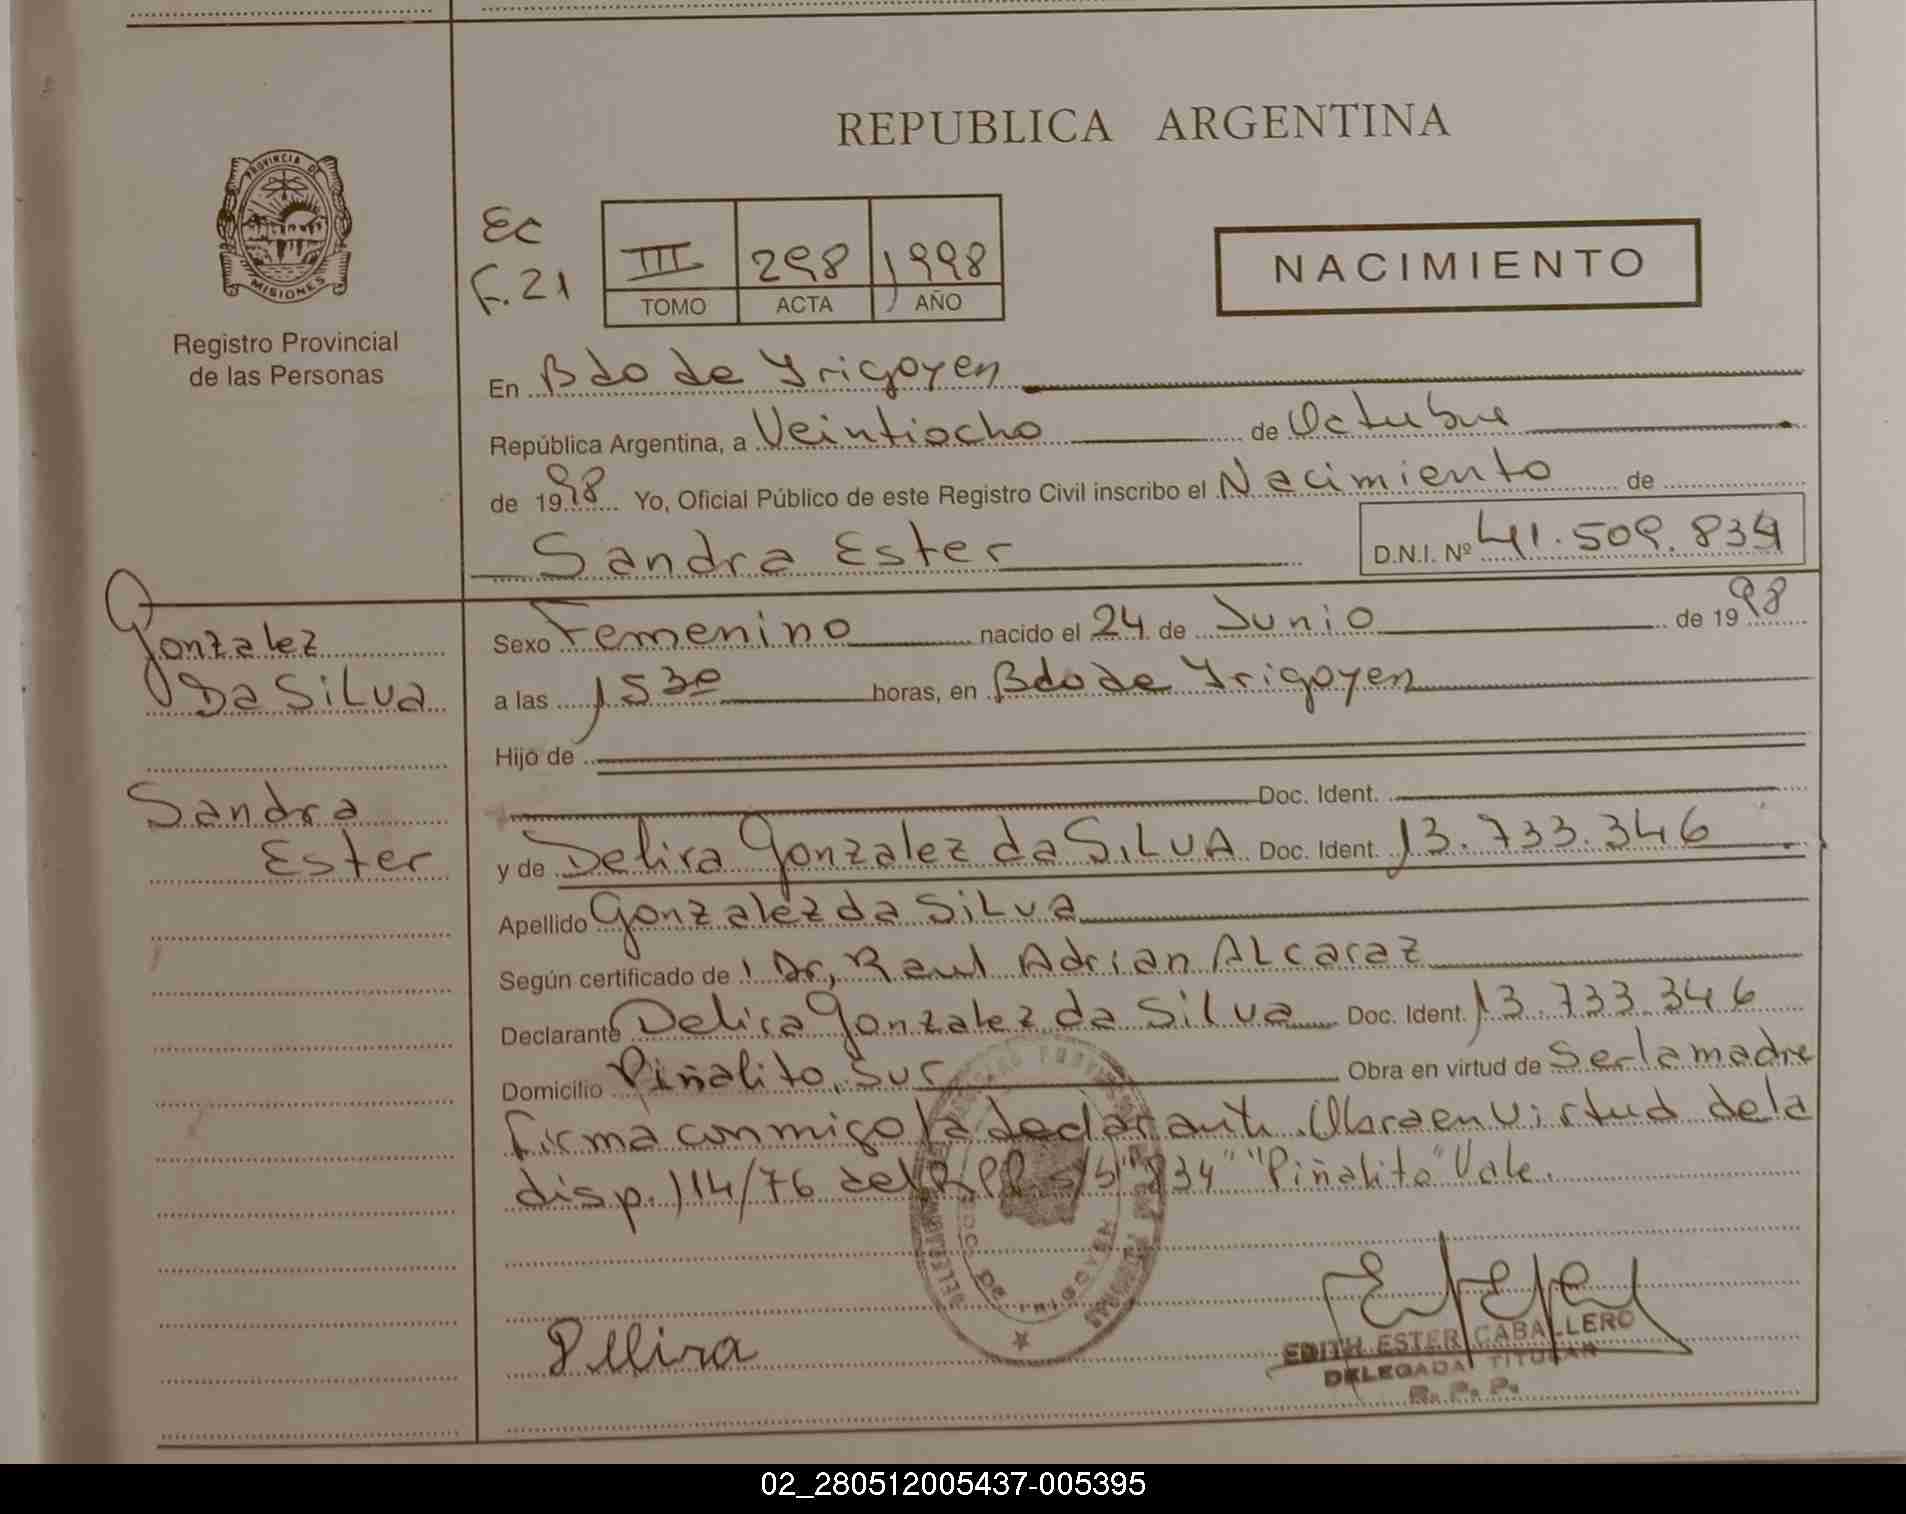 REPUBLICA ARGENTINA
PROVINCIA DE
MISIONES
Registro Provincial
de las Personas
Ec
F. 21
III 298 1998
TOMO ACTA AÑO
NACIMIENTO
En Bdo de Yrigoyen
República Argentina, a Veintiocho de Octubre
de 1998 Yo, Oficial Público de este Registro Civil inscribo el Nacimiento de
Sandra Ester D.N.I. Nº 41.509.834
Gonzalez
Da Silva
Sandra
Ester
Sexo Femenino nacido el 24 de Junio de 1998
a las 1530 horas, en Bdo de Yrigoyen
Hijo de
Doc. Ident.
y de Delira Gonzalez da SiLVA Doc. Ident. 13.733.346
Apellido Gonzalez da Silva
Según certificado de Dr, Raul Adrian ALcaraz
Declarante Delira Gonzalez da Silva Doc. Ident. 13.733.346
Domicilio Piñalito, Sur Obra en virtud de Ser la madre
firma conmigo la declarante. Obra en virtud de la
disp. 114/76 del R.P.P. s/s "834" "Piñalito" Vale.
Delira
EDITH ESTER CABALLERO
DELEGADA TITULAR
R. P. P.
02_280512005437-005395